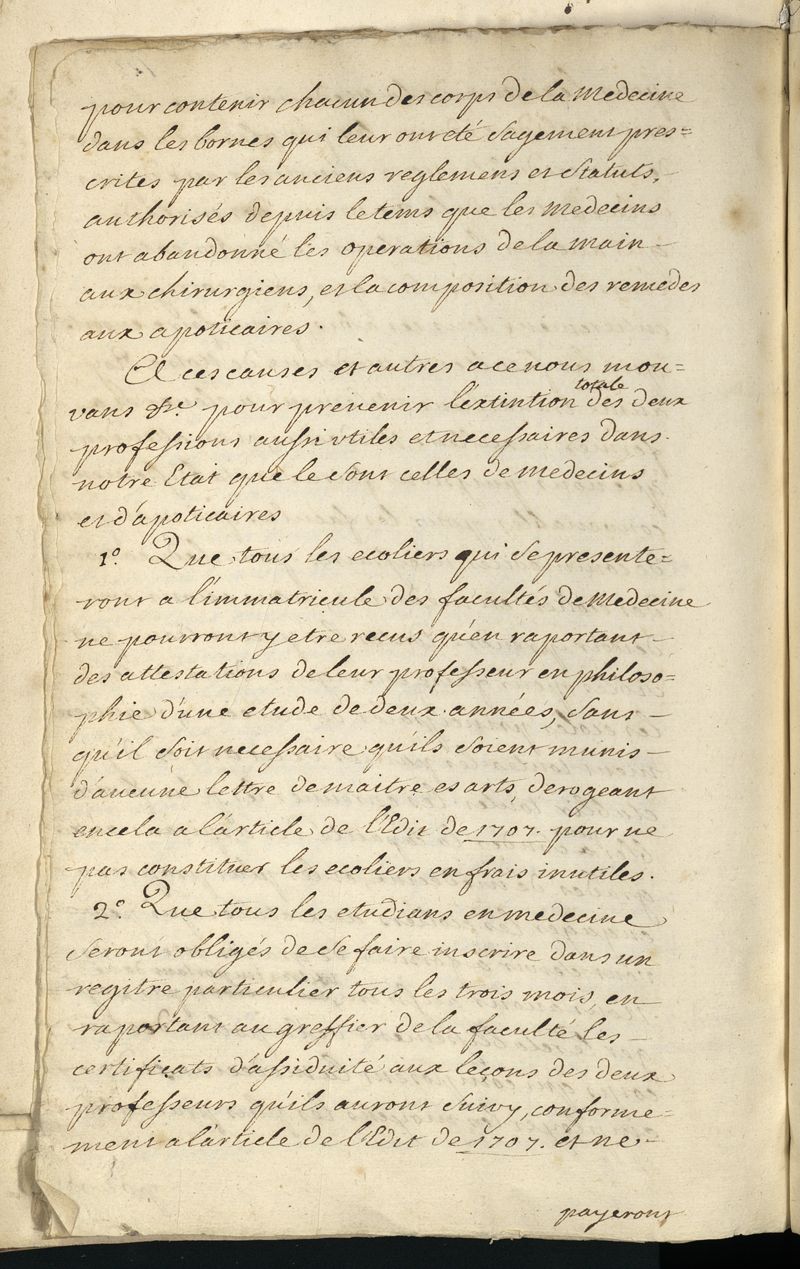 pour contenir chacun des corps de la Medecine
dans les bornes qui leur ont été sagement pres=
crites par les anciens reglemens et statuts,
authorisés depuis le tems que les Medecins
ont abandonné les operations de la main
aux chirurgiens, et la composition des remedes
aux apoticaires.
A ces causes et autres a ce nous mou=
vans &c. pour prevenir l'extintion totale des deux
professions aussi utiles et necessaires dans
notre Etat que le sont celles de medecins
et d'apoticaires
1.° Que tous les ecoliers qui se presente=
ront a l'immatricule des facultés de Medecine
ne pourront y etre recus qu'en raportant
des attestations de leur professeur en philoso=
phie d'une etude de deux années, sans
qu'il soit necessaire qu'ils soient munis
d'aucune lettre de maitre es arts, derogeant
en cela a l'article de l'Edit de 1707. pour ne
pas constituer les ecoliers en frais inutiles.
2.° Que tous les etudians en medecine
seront obligés de se faire inscrire dans un
regitre particulier tous les trois mois, en
raportant au greffier de la faculté les
certificats d'assiduité aux leçons des deux
professeurs qu'ils auront suivy, conforme=
ment a l'article de l'Edit de 1707. et ne
payeront